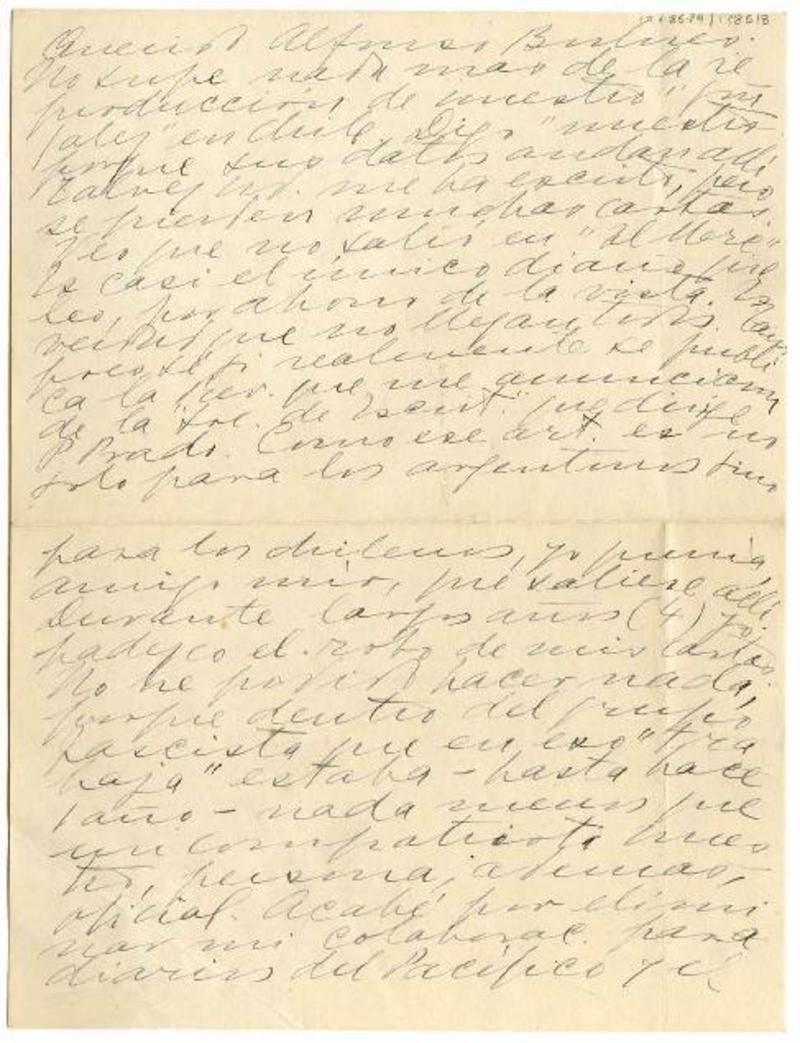 Querido Alfonso Bulnes:
No supe nada mas de la re
producción de nuestro "
en Chile. Digo "nuestro
porque sus datos andan allí
Talvez Ud. me ha escrito, pero
se pierden muchas cartas.
Veo que no salió en "El Merc"
Es casi el único diario que
leo, por ahorro de la vista. Es
verdad que no llegan todos. Tam
poco sé si realmente se publi
ca la Rev. que me anunciaron
de la "Soc. de Escrit." que dirige
P. Prado. Como ese art. es no
solo para los argentinos sino
para los chilenos, yo quería,
amigo mío, que saliese allí
Durante largos años (4) yo
padezco el robo de mis cartas.
No he podido hacer nada,
porque dentro del grupo
fascista que en eso "tra
baja" estaba - hasta hace
1 año - nada menos que
un compatriota nues
tro, persona, además,
oficial. Acabé por elimi
nar mi colaborac. para
diarios del Pacífico y el